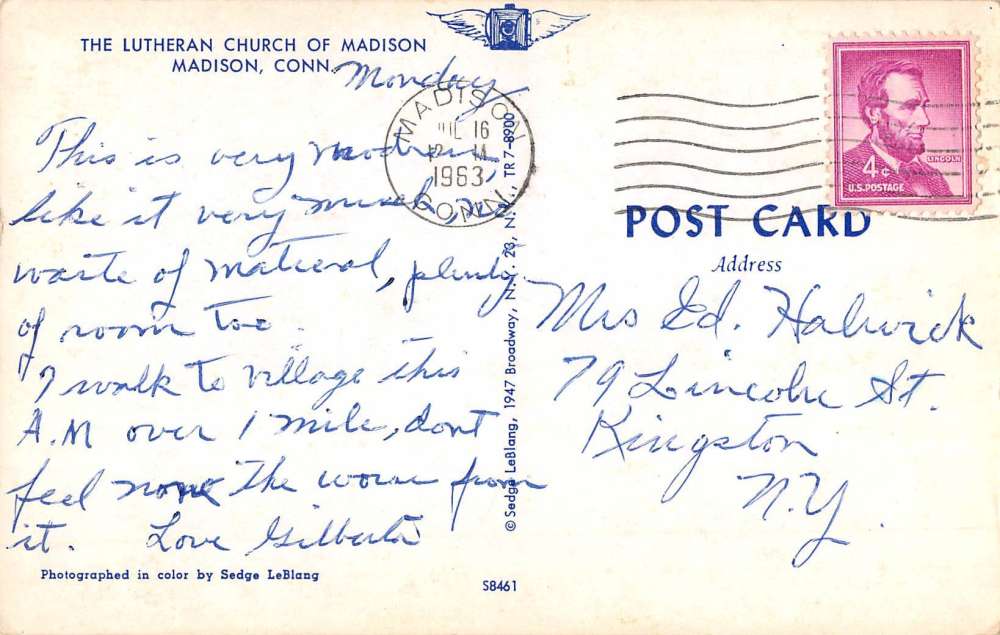 THE LUTHERAN CHURCH OF MADISON
MADISON, CONN.
Monday
This is very modren,
like it very much, no
waste of matieral, plenty
of room too.
I walk to village this
A.M over 1 mile, dont
feel none the worse from
it. Love Gilberta
Photographed in color by Sedge LeBlang
MADISON
JUL 16
12 M
1963
CONN.
© Sedge LeBlang, 1947 Broadway, N.Y. 23, N.Y., TR 7-8900
S8461
4¢
LINCOLN
U.S. POSTAGE
POST CARD
Address
Mrs Ed. Halwick
79 Lincoln St.
Kingston
N.Y.